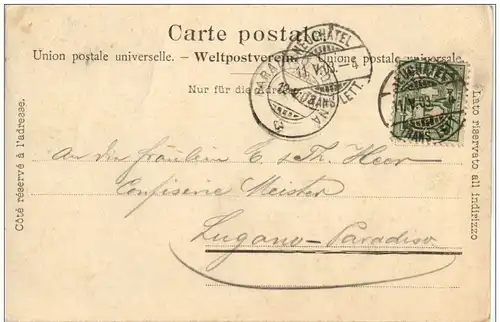 Carte postale.
Union postale universelle. – Weltpostverein. – Unione postale universale.
Nur für die Adresse
Côté réservé à l'adresse.
Lato riservato all indirizzo
NEUCHÂTEL
11.V.03.–4
TRANS. LETT.
NEUCHÂTEL
11.V.03
TRANS. LETT.
An die Fräulein C & Th. Heer
Confiserie Meister
Lugano-Paradiso